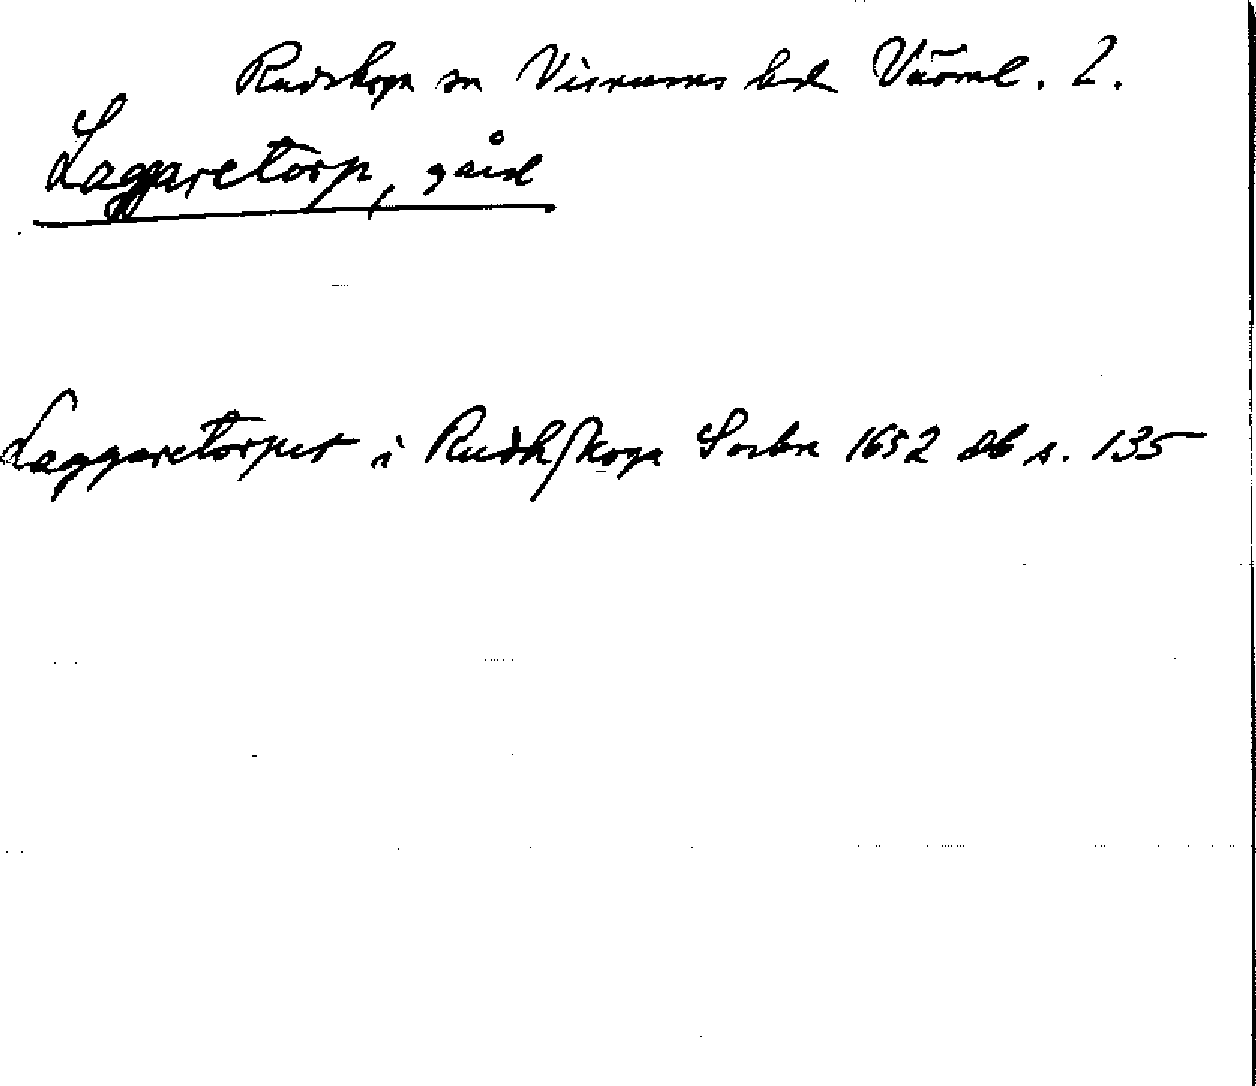 Rudskoga sn Visnums hd Värml. l.
Laggaretorp, gård
Laggaretorpet i Rudhskoga Sochn 1652 db s. 135